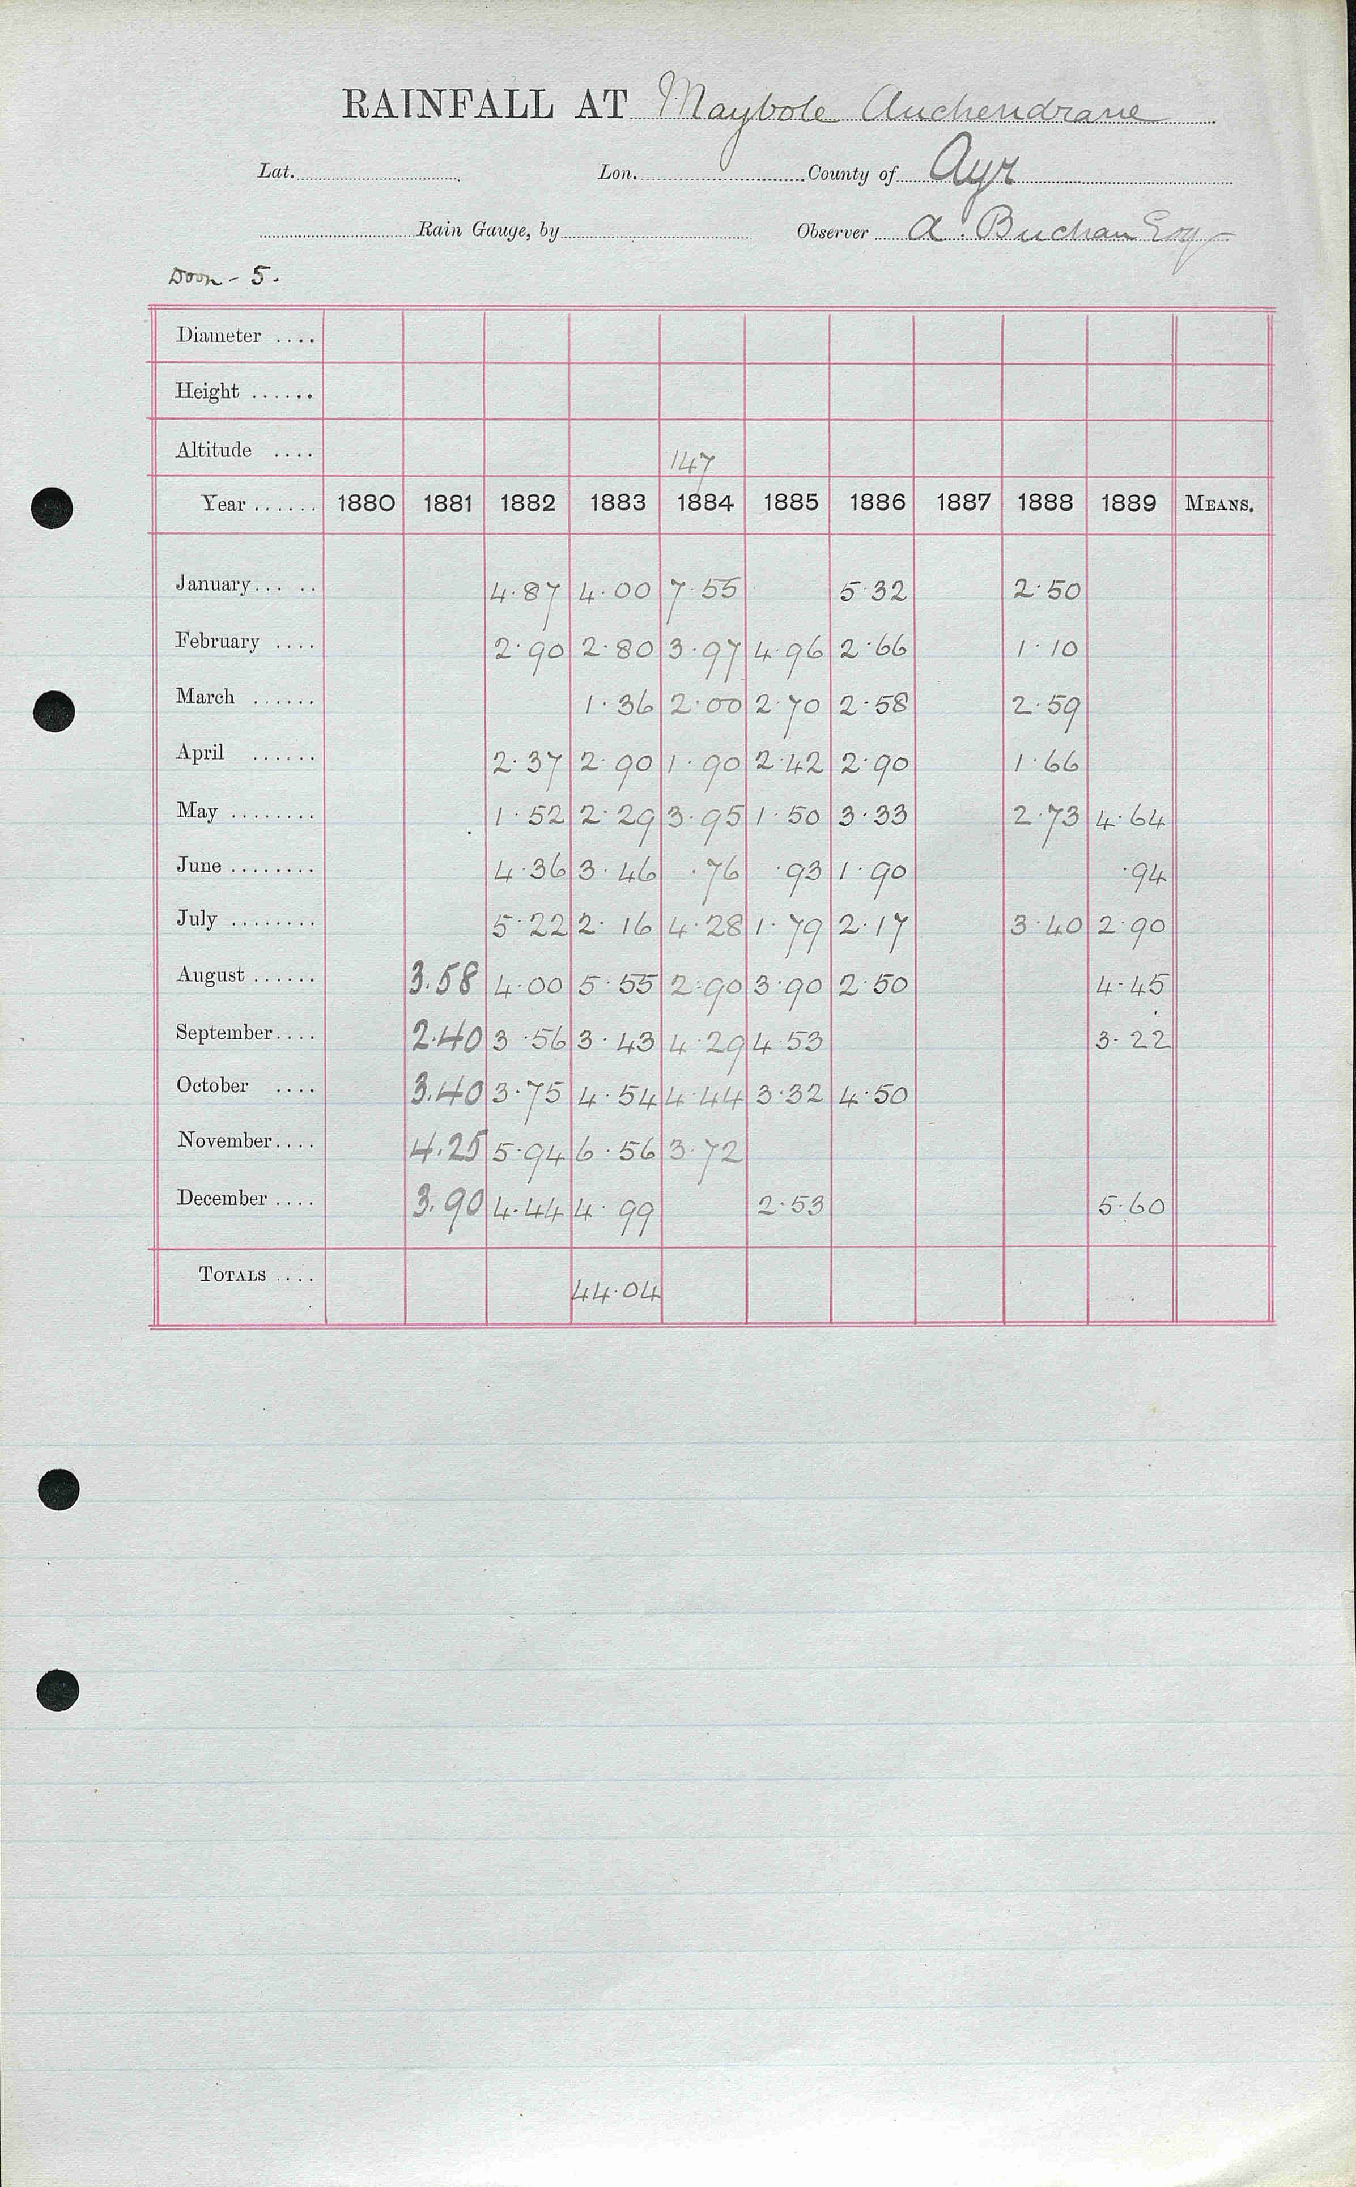 RAINFALL AT Maybole Auchendrane
Lat. Lon. County of Ayr
Rain Gauge, by Observer A. Buchan Esq
Doon - 5.
Diameter ....
Height ......
Altitude .... 147
Year ...... 1880 1881 1882 1883 1884 1885 1886 1887 1888 1889 MEANS.
January... .. 4.87 4.00 7.55 5.32 2.50
February .... 2.90 2.80 3.97 4.96 2.66 1.10
March ...... 1.36 2.00 2.70 2.58 2.59
April ...... 2.37 2.90 1.90 2.42 2.90 1.66
May ........ 1.52 2.29 3.95 1.50 3.33 2.73 4.64
June ........ 4.36 3.46 .76 .93 1.90 .94
July ........ 5.22 2.16 4.28 1.79 2.17 3.40 2.90
August ...... 3.58 4.00 5.55 2.90 3.90 2.50 4.45
September.... 2.40 3.56 3.43 4.29 4.53 3.22
October .... 3.40 3.75 4.54 4.44 3.32 4.50
November.... 4.25 5.94 6.56 3.72
December .... 3.90 4.44 4.99 2.53 5.60
TOTALS .... 44.04